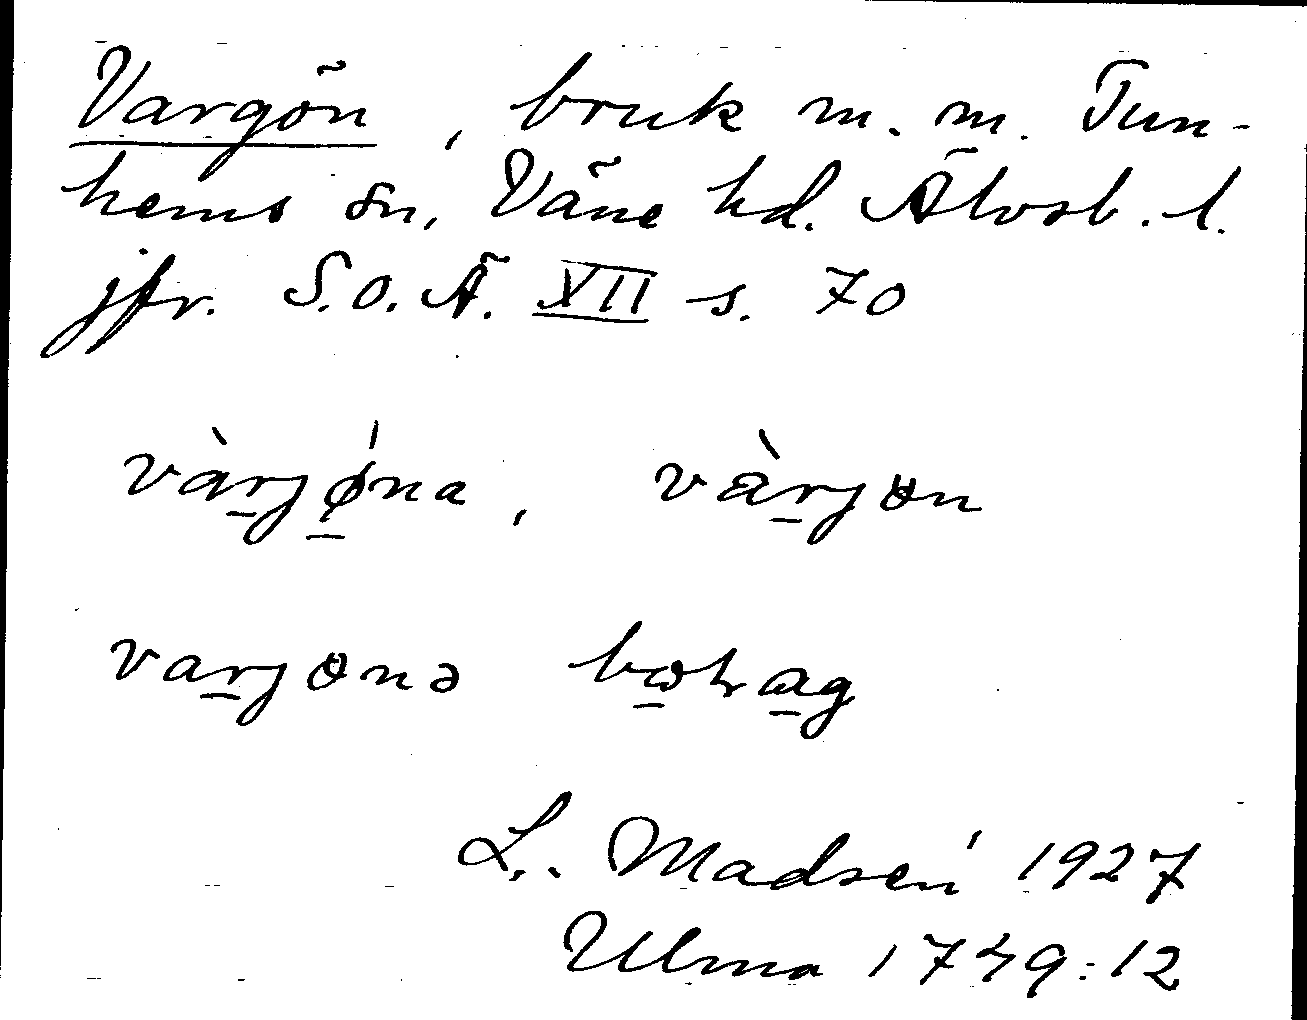 Vargön, bruk m. m. Tun-
hems sn, Väne hd. Älvsb. l.
jfr. S.O.Ä. XII s. 70
vàrjǿna, vàrjɵn
varjɵnə
L. Madsén 1927
Ulma 1749:12